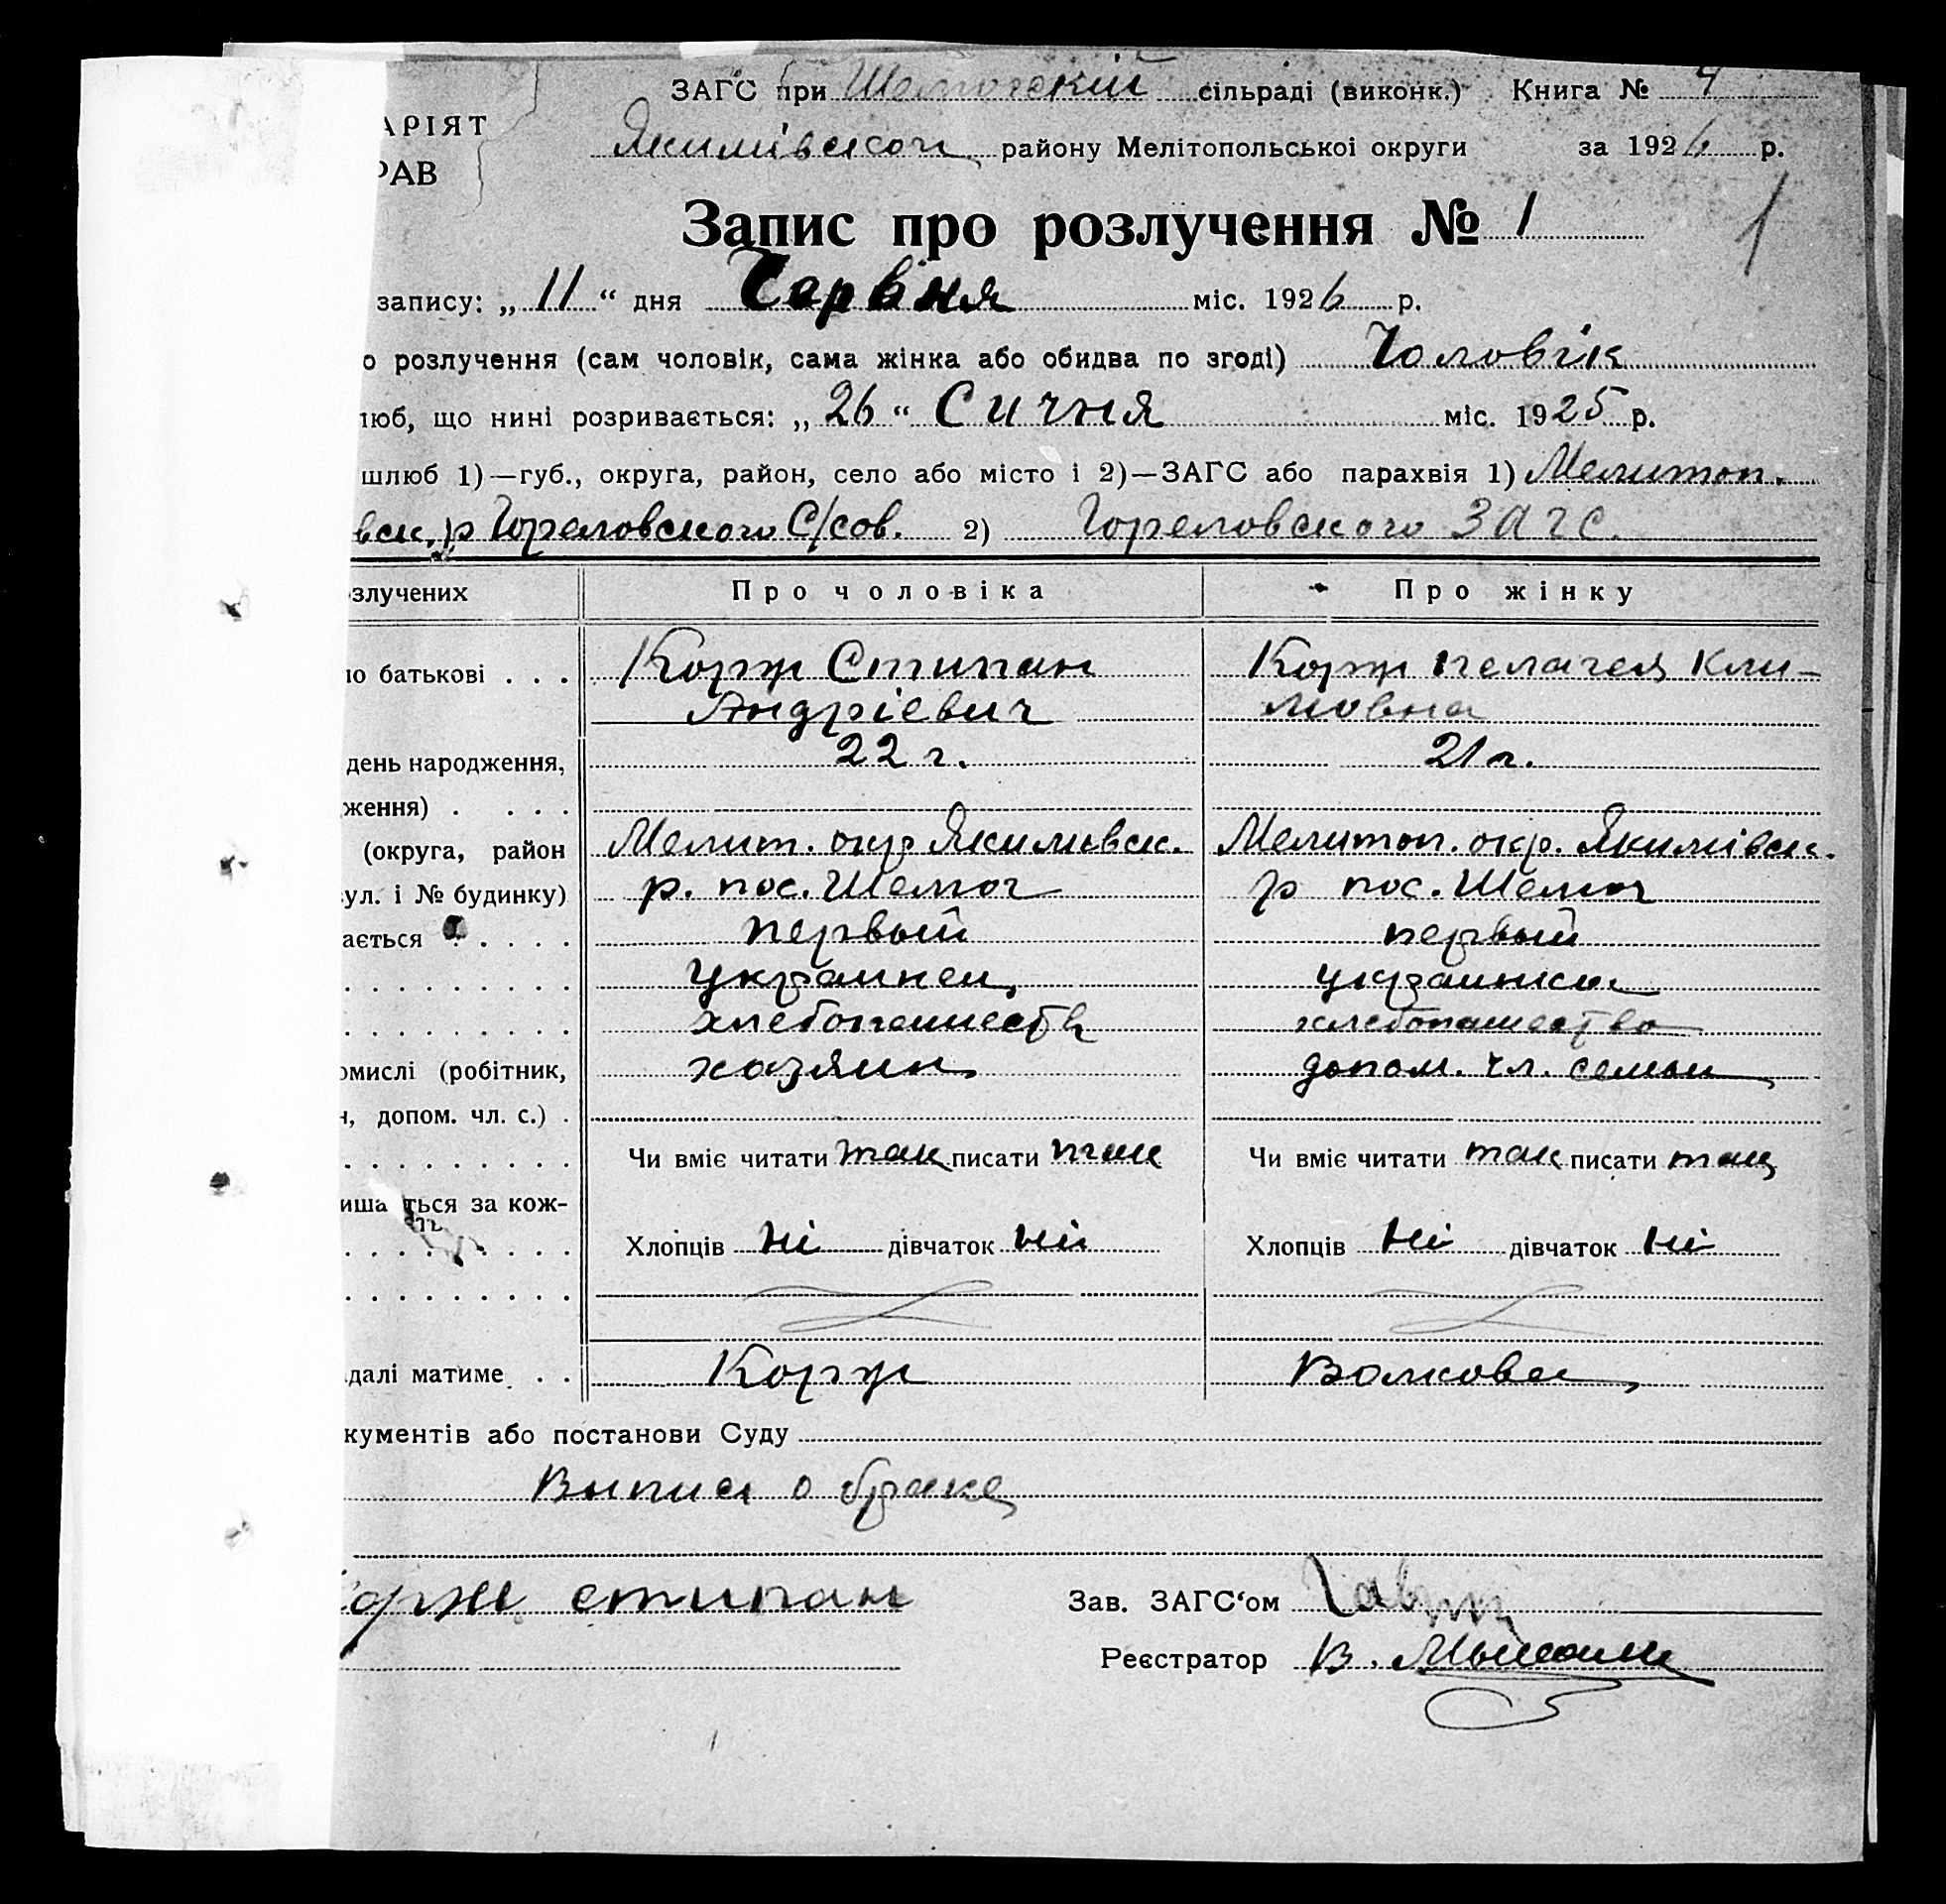 ЗАГС при Шелюгскій сільраді (виконк.) Книга № 4
АРІЯТ
Якимівскої району Мелітопольської округи за 1926 р.
РАВ
Запис про розлучення № 1
1
запису: „ 11 “ дня Червня міс. 1926 р.
о розлучення (сам чоловік, сама жінка або обидва по згоді) Чоловік
люб, що нині розривається: „ 26 “ Сичня міс. 1925 р.
шлюб 1)—губ., округа, район, село або місто і 2)—ЗАГС або парахвія 1) Мелитоп.
вск. р Гореловского С/сов. 2) Гореловского ЗАГС.
озлучених Про чоловіка Про жінку
по батькові . . . Корж Стипан Корж пелагея Кли-
Андріевич мовна
день народження, 22 г. 21 г.
ження) . . . .
(округа, район Мелит. окр Якимивск. Мелитоп. окр. Якимівск.
ул. і № будинку) р. пос. Шелюг р пос. Шелюг
ається . . . . первый первый
украинец украинка
хлебопашеств хлебопашество
омислі (робітник, хозяин допом. чл. семьи
н, допом. чл. с.) .
Чи вміє читати так писати так Чи вміє читати так писати так
иша ться за кож-
Хлопців Ні дівчаток ні Хлопців Ні дівчаток Ні
далі матиме . . Корж Волкова
кументів або постанови Суду
Выпись о браке
Корж стипан Зав. ЗАГС‘ом
Реєстратор В.